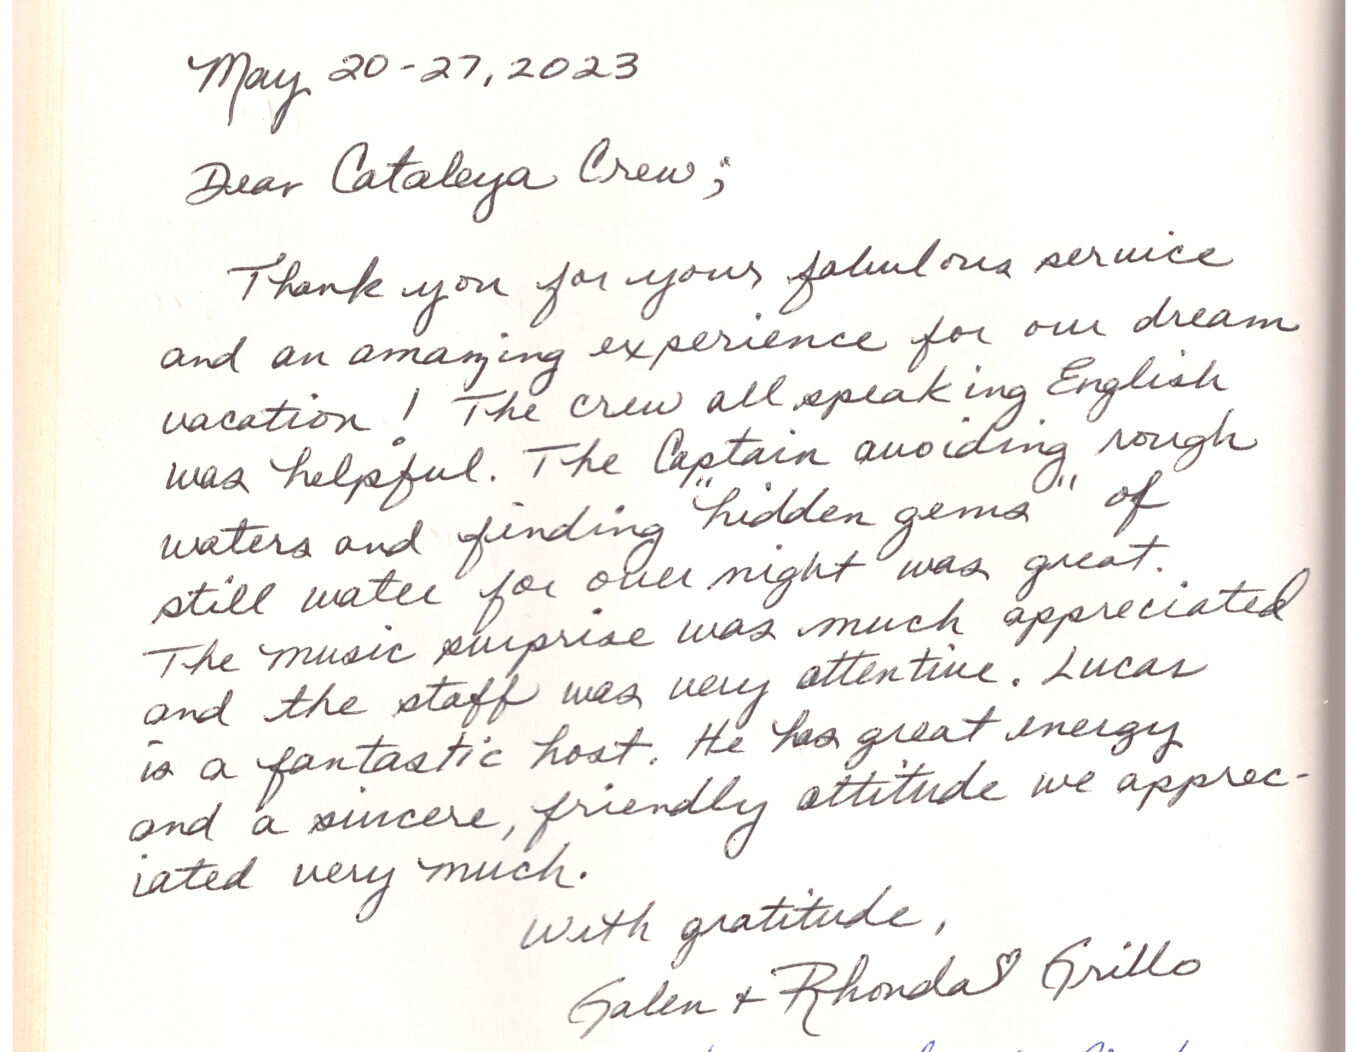 May 20-27, 2023
Dear Cataleya Crew;
Thank you for your fabulous service
and an amazing experience for our dream
vacation! The crew all speaking English
was helpful. The Captain avoiding rough
waters and finding "hidden gems" of
still water for over night was great.
The music surprise was much appreciated
and the staff was very attentive. Lucas
is a fantastic host. He has great energy
and a sincere, friendly attitude we apprec-
iated very much.
With gratitude,
Galen + Rhonda ♡ Grillo